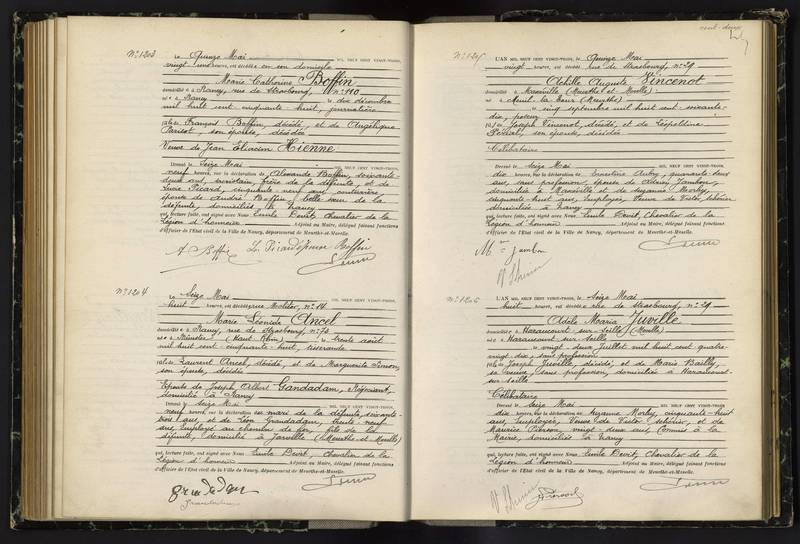 N° 1203
Le Quinze Mai MIL NEUF CENT VINGT-TROIS,
vingt une heures, est décédée en son domicile
Marie Catherine Boffin
domiciliée à Nancy, rue de Strasbourg, n° 110
née à Nancy le dix décembre
mil huit cent cinquante-huit, journalière
fille de François Boffin, décédé, et de Angélique
Parisot, son épouse, décédée
Veuve de Jean Eliacim Hienne
Dressé le Seize Mai MIL NEUF CENT VINGT-TROIS,
neuf heures, sur la déclaration de Alexandre Boffin, soixante-
deux ans, frère de la défunte, et de
Picard, cinquante neuf ans, couturière,
épouse de André Boffin, belle sœur de la
défunte, domiciliés à Nancy
qui, lecture faite, ont signé avec Nous Emile Devit, Chevalier de la
Légion d'honneur Adjoint au Maire, délégué faisant fonctions
d'Officier de l'Etat civil de la Ville de Nancy, département de Meurthe-et-Moselle.
A Boffin
N° 1204
Le Seize Mai MIL NEUF CENT VINGT-TROIS,
huit heures, est décédée rue Molitor, n° 14
Marie Léonide Ancel
domiciliée à Nancy, rue de Strasbourg n° 73
née à Munster (Haut Rhin) le trente août
mil huit cent cinquante-huit, tisserande
fille de Laurent Ancel, décédé, et de Marguerite Simon,
son épouse, décédée
Epouse de Joseph Albert Gandadam, Négociant,
domicilié à Nancy
Dressé le seize Mai MIL NEUF CENT VINGT-TROIS,
neuf heures, sur la déclaration de mari de la défunte, soixante-
trois ans, et de Léon Grandadam, trente-neuf
ans, Employé au chemin de fer, fils de la
défunte, domicilié à Jarville (Meurthe et Moselle)
qui, lecture faite, ont signé avec Nous Emile Devit, Chevalier de la
Légion d'honneur Adjoint au Maire, délégué faisant fonctions
d'Officier de l'Etat civil de la Ville de Nancy, département de Meurthe-et-Moselle.
N° 1205
L'AN MIL NEUF CENT VINGT-TROIS, le Quinze Mai
vingt heures, est décédé rue de Strasbourg, n° 29
Achille Auguste Vincenot
domicilié à Maxéville (Meurthe et Moselle)
né à (Meurthe)
le cinq septembre mil huit cent soixante-
dix,
fils de Joseph Vincenot, décédé, et de Léopoldine
son épouse, décédée
Célibataire
Dressé le seize Mai MIL NEUF CENT VINGT-TROIS,
dix heures, sur la déclaration de Ernestine Aubry, quarante-deux
ans, sans profession, épouse de Adrien Jambon,
domiciliée à Maxéville et de Suzanne Morby,
cinquante-huit ans, Employée, Veuve de Victor
domiciliée à Nancy
qui, lecture faite, ont signé avec Nous Emile Devit, Chevalier de la
Légion d'honneur Adjoint au Maire, délégué faisant fonctions
d'Officier de l'Etat civil de la Ville de Nancy, département de Meurthe-et-Moselle.
N° 1206
L'AN MIL NEUF CENT VINGT-TROIS, le Seize Mai
huit heures, est décédée rue de Strasbourg, n° 29
Adèle Maria Juville
domiciliée à Haraucourt sur Seille (Moselle)
née à Haraucourt sur Seille
le vingt deux Juillet mil huit cent quatre-
vingt dix, sans profession
fille de Joseph Juville, décédé, et de Marie Bailly,
sa veuve, sans profession, domiciliée à Haraucourt-
sur-Seille
Célibataire
Dressé le seize Mai MIL NEUF CENT VINGT-TROIS,
dix heures, sur la déclaration de Suzanne Morby, cinquante-huit
ans, Employée, Veuve de Victor et de
Maurice vingt-deux ans, Commis à la
Mairie, domiciliés à Nancy
qui, lecture faite, ont signé avec Nous Emile Devit, Chevalier de la
Légion d'honneur Adjoint au Maire, délégué faisant fonctions
d'Officier de l'Etat civil de la Ville de Nancy, département de Meurthe-et-Moselle.